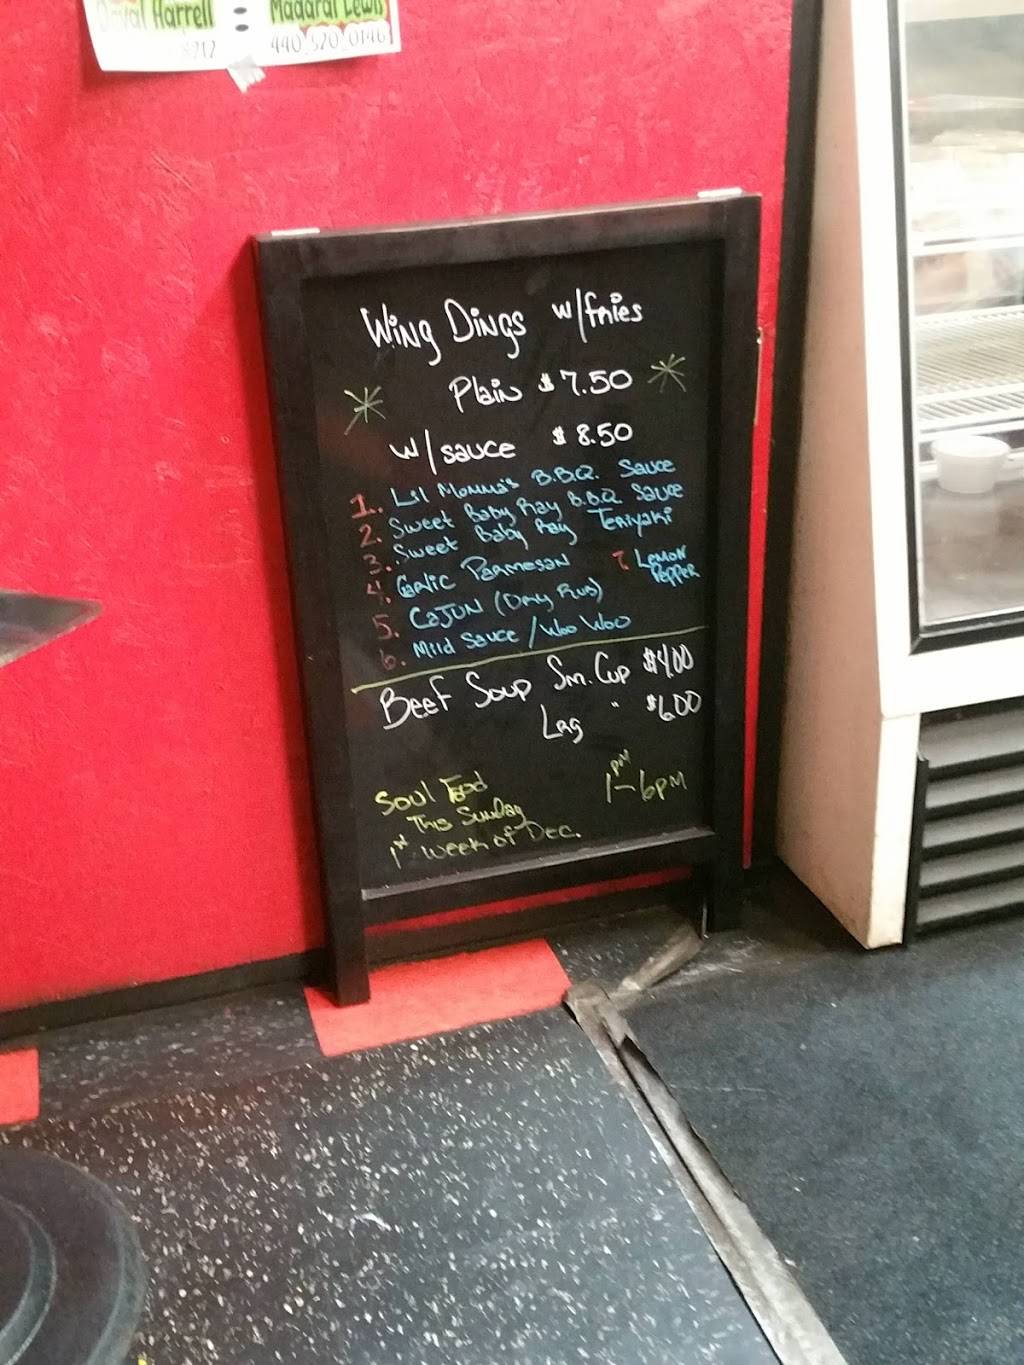 Harrell : Madaral Lewis
8212 440 520 0146
Wing Dings w/fries
Plain $7.50
w/sauce $8.50
1. Lil Momma's B.B.Q. Sauce
2. Sweet Baby Ray B.B.Q Sauce
3. Sweet Baby Ray Teriyaki
4. Garlic Parmesan
7 Lemon
Pepper
5. Cajun (Dry Rub)
6. Mild Sauce / Woo Woo
Beef Soup Sm. Cup $4.00
Lrg " $6.00
Soul Food 1pm-6pm
This Sunday
1st week of Dec.